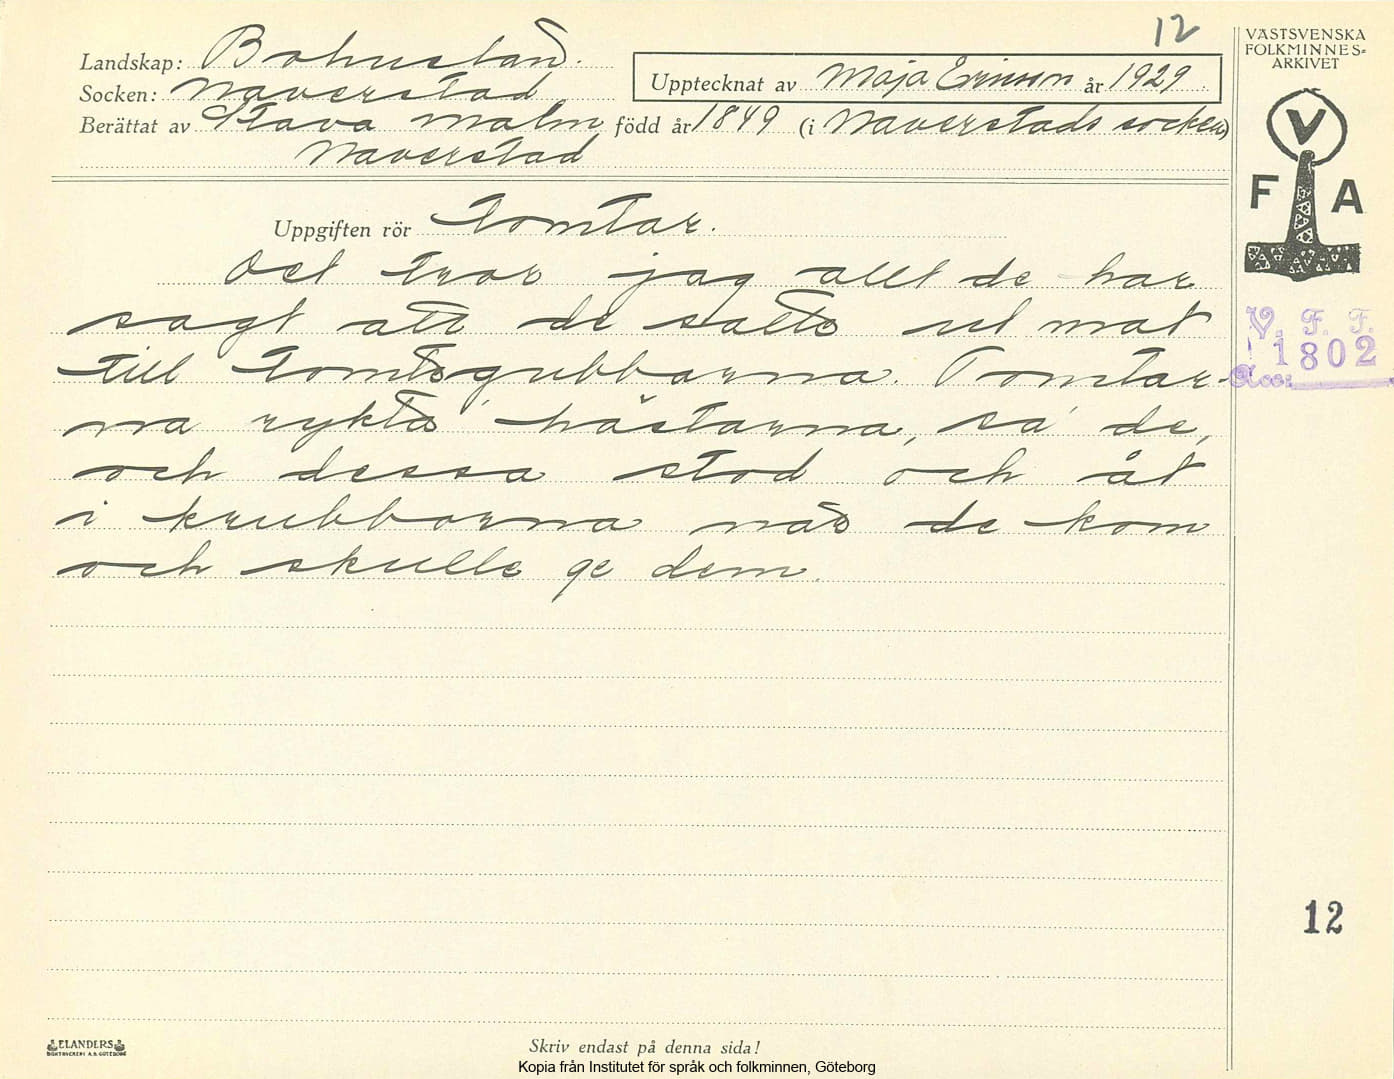 12
VÄSTSVENSKA
FOLKMINNES-
ARKIVET
Landskap: Bohuslän.
Socken: Naverstad
Upptecknat av Maja Ericson år 1929
Berättat av Stava Malm född år 1849 (i Naverstads socken)
Naverstad
V
F A
Uppgiften rör Tomtar.
Det tror jag allt de har
sagt att de satte ut mat
till tomtegubbarna. Tomtar-
na ryktade hästarna, sa' de,
och dessa stod och åt
i krubborna när de kom
och skulle ge dem.
V. F. F.
1802
Acc:
12
ELANDERS
BOKTRYCKERI A.B. GÖTEBORG
Skriv endast på denna sida!
Kopia från Institutet för språk och folkminnen, Göteborg